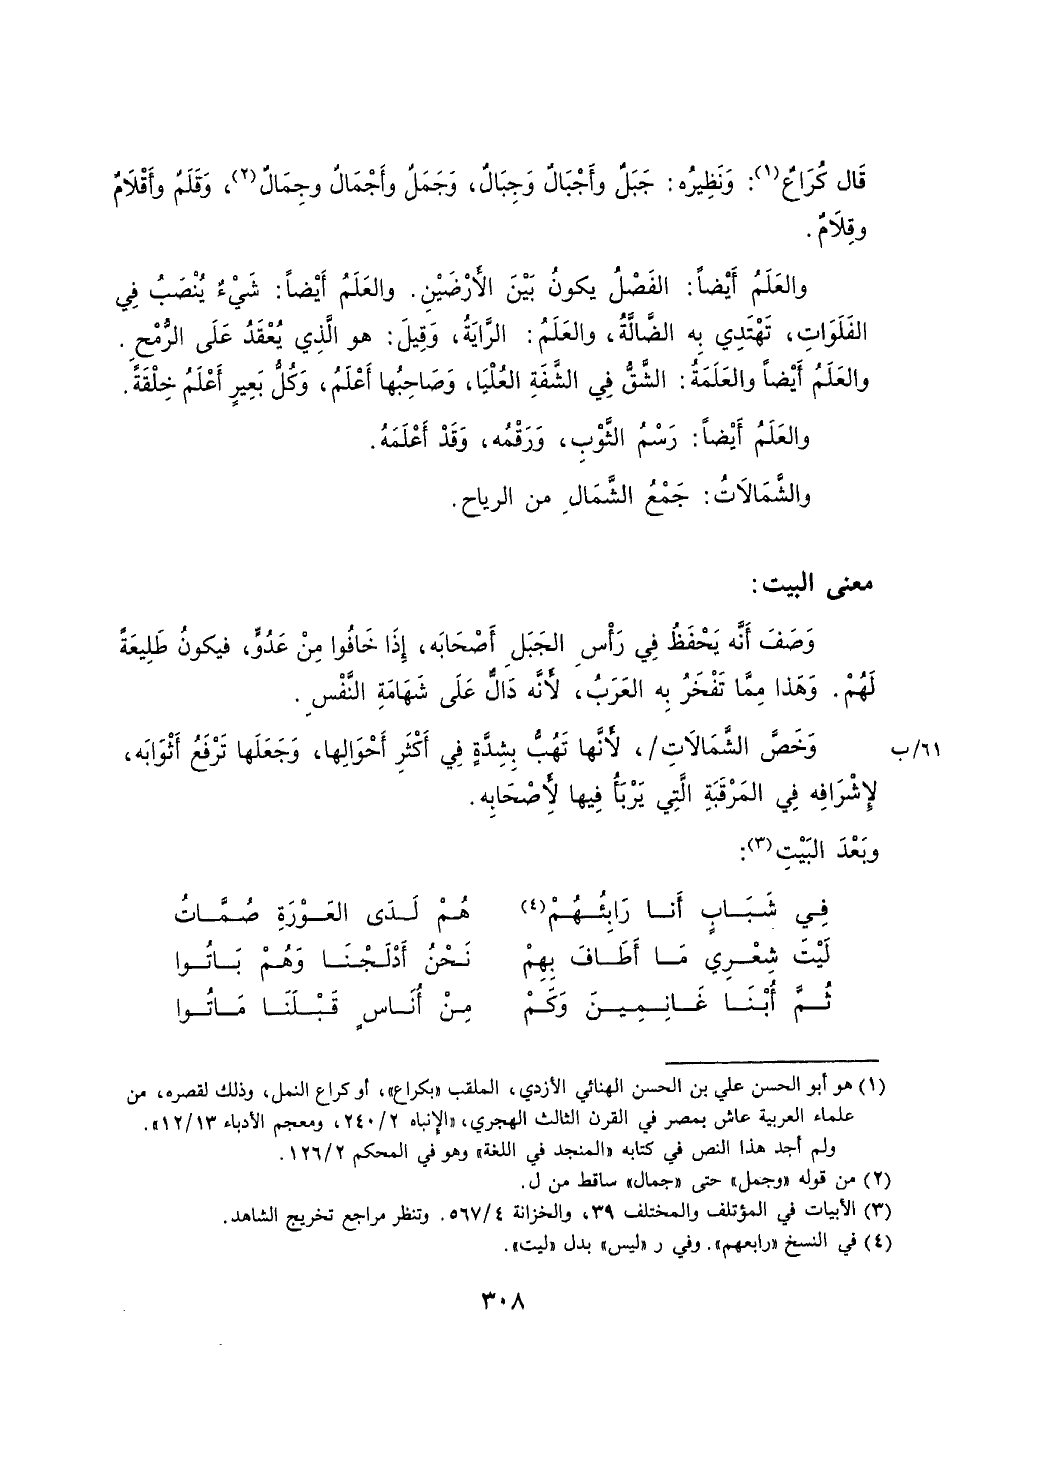 قَال كُرَاعٌ(١): وَنَظِيرُه: جَبَلٌ وأَجْبَالٌ وَجِبَالٌ، وَجَمَلٌ وأَجْمَالٌ وجِمَالٌ(٢)، وَقَلَمٌ وأَقْلَامٌ
وقِلَامٌ.
والعَلَمُ أَيْضاً: الفَصْلُ يكونُ بَيْنَ الأَرْضَيْنِ. والعَلَمُ أَيْضاً: شَيْءٌ يُنْصَبُ فِي
الفَلَوَاتِ، تَهْتَدِي بِه الضَّالَّةُ، والعَلَمُ: الرَّايَةُ، وَقِيلَ: هو الَّذِي يُعْقَدُ عَلَى الرُّمْحِ.
والعَلَمُ أَيْضاً والعَلَمَةُ: الشَّقُّ فِي الشَّفَةِ العُلْيَا، وَصَاحِبُها أَعْلَمُ، وَكُلُّ بَعِيرٍ أَعْلَمُ خِلْقَةً.
والعَلَمُ أَيْضاً: رَسْمُ الثَّوْبِ، وَرَقْمُه، وَقَدْ أَعْلَمَهُ.
والشَّمَالَاتُ: جَمْعُ الشَّمَالِ من الرياح.
معنى البيت:
وَصَفَ أَنَّه يَحْفَظُ فِي رَأْسِ الجَبَلِ أَصْحَابَه، إِذَا خَافُوا مِنْ عَدُوٍّ، فيكونُ طَلِيعَةً
لَهُمْ. وَهَذا مِمَّا تَفْخَرُ بِه العَرَبُ، لأَنَّه دَالٌّ عَلَى شَهَامَةِ النَّفْسِ.
٦١/ب وَخَصَّ الشَّمَالَاتِ/، لأَنَّها تَهُبُّ بِشِدَّةٍ فِي أَكْثَرِ أَحْوَالِها، وَجَعَلَها تَرْفَعُ أَثْوَابَه،
لإِشْرَافِه فِي المَرْقَبَةِ الَّتِي يَرْبَأُ فِيها لأَصْحَابِه.
وبَعْدَ البَيْتِ(٣):
فِي شَبَابٍ أَنا رَابِئُهُمْ(٤) هُمْ لَدَى العَوْرَةِ صُمَّاتُ
لَيْتَ شِعْرِي مَا أَطَافَ بِهِمْ نَحْنُ أَدْلَجْنَا وَهُمْ بَاتُوا
ثُمَّ أُبْنَا غَانِمِينَ وَكَمْ مِنْ أُنَاسٍ قَبْلَنَا مَاتُوا
(١) هو أبو الحسن علي بن الحسن الهنائي الأزدي، الملقب «بكراع»، أو كراع النمل، وذلك لقصره، من
علماء العربية عاش بمصر في القرن الثالث الهجري، «الإنباه ٢/٢٤٠، ومعجم الأدباء ١٢/١٣».
ولم أجد هذا النص في كتابه «المنجد في اللغة» وهو في المحكم ١٢٦/٢.
(٢) من قوله «وجمل» حتى «جمال» ساقط من ل.
(٣) الأبيات في المؤتلف والمختلف ٣٩، والخزانة ٥٦٧/٤. وتنظر مراجع تخريج الشاهد.
(٤) في النسخ «رابعهم». وفي ر «ليس» بدل «ليت».
٣٠٨